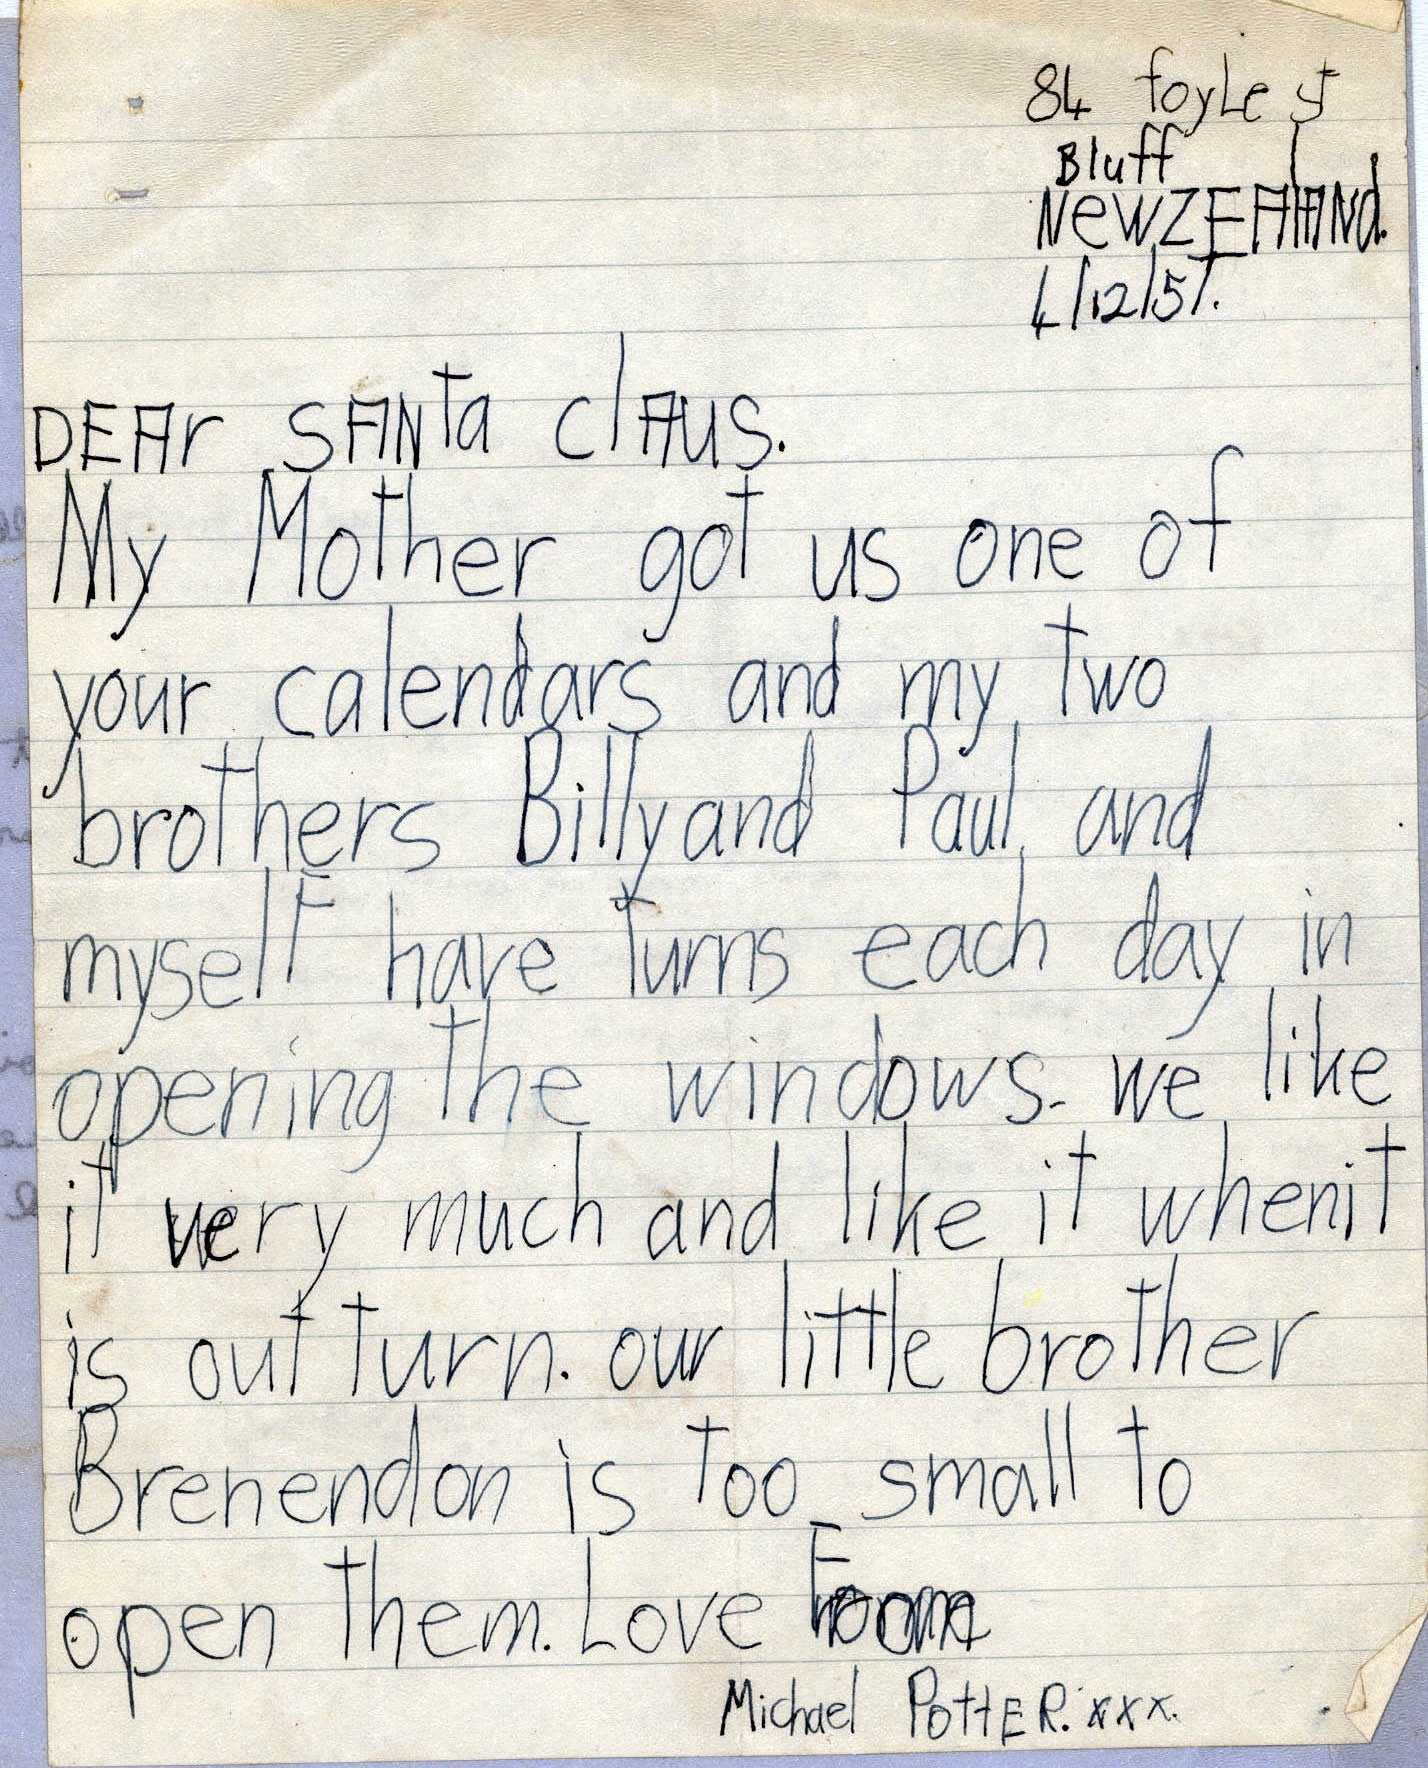 84 foyle st
Bluff
NewZEALANd.
4/12/57.
DEAr SANta clAus.
My Mother got us one of
your calendars and my two
brothers Billy and Paul and
myself have turns each day in
opening the windows. we like
it very much and like it when it
is out turn. our little brother
Brenendon is too small to
open them. Love From
Michael PottER. xxx.